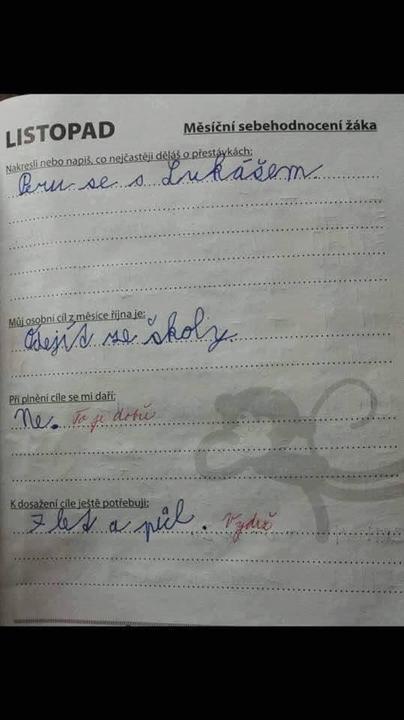 LISTOPAD
Měsíční sebehodnocení žáka
Nakresli nebo napiš, co nejčastěji děláš o přestávkách:
Peru se s Lukášem.
Můj osobní cíl z měsíce října je:
Odejít ze školy.
Při plnění cíle se mi daří:
Ne. To je dobře
K dosažení cíle ještě potřebuji:
7 let a půl. Vydrž